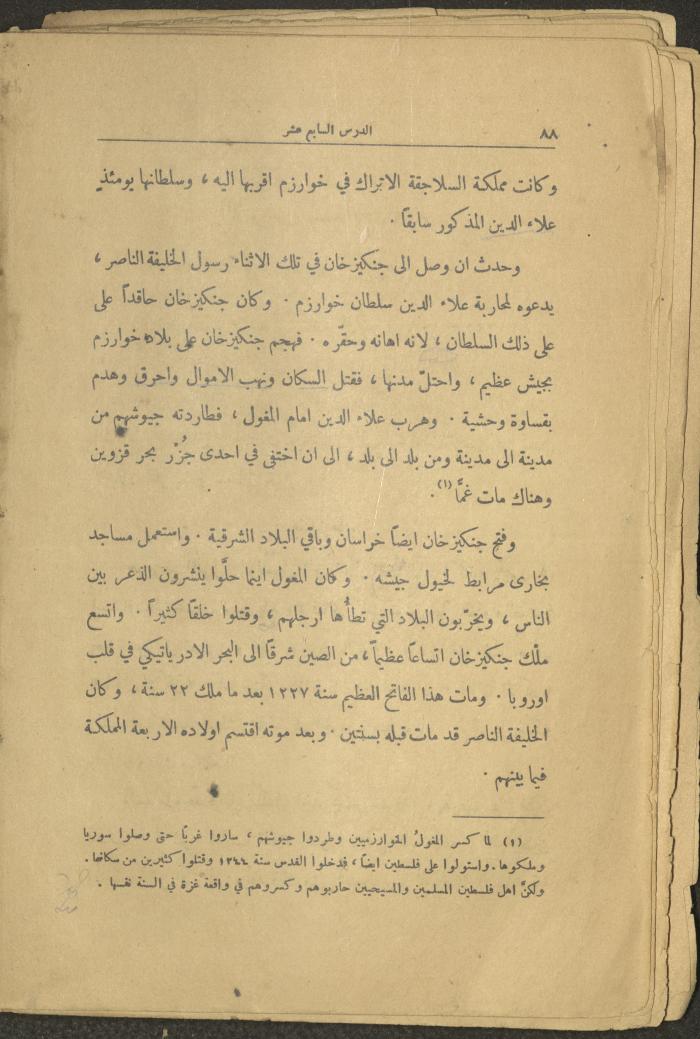 ٨٨
الدرس السابع عشر
وكانت مملكة السلاجقة الاتراك في خوارزم اقربها اليه ، وسلطانها يومئذٍ
علاء الدين المذكور سابقاً .
وحدث ان وصل الى جنكيزخان في تلك الاثناء رسول الخليفة الناصر ،
يدعوه لمحاربة علاء الدين سلطان خوارزم . وكان جنكيزخان حاقداً على
على ذلك السلطان ، لانه اهانه وحقّره . فهجم جنكيزخان على بلاد خوارزم
بجيش عظيم ، واحتلّ مدنها ، فقتل السكان ونهب الاموال واحرق وهدم
بقساوة وحشية . وهرب علاء الدين امام المغول ، فطاردته جيوشهم من
مدينة الى مدينة ومن بلد الى بلد ، الى ان اختفى في احدى جُزْر بحر قزوين
وهناك مات غمًّا (١).
وفتح جنكيزخان ايضاً خراسان وباقي البلاد الشرقية . واستعمل مساجد
بخارى مرابط لخيول جيشه . وكان المغول اينما حلَّوا ينشرون الذعر بين
الناس ، ويخرّبون البلاد التي تطأُها ارجلهم ، وقتلوا خلقاً كثيراً . واتسع
ملْك جنكيزخان اتساعاً عظيماً ، من الصين شرقاً الى البحر الادرياتيكي في قلب
اوروبا . ومات هذا الفاتح العظيم سنة ١٢٢٧ بعد ما ملك ٢٢ سنة ، وكان
الخليفة الناصر قد مات قبله بسنتين . وبعد موته اقتسم اولاده الاربعة المملكة
فيما بينهم .
(١) لما كسر المغولُ الخوارزميين وطردوا جيوشهم ، ساروا غربًا حتى وصلوا سوريا
وملكوها . واستولوا على فلسطين ايضاً ، فدخلوا القدس سنة ١٢٤٤ وقتلوا كثيرين من سكانها .
ولكنّ اهل فلسطين المسلمين والمسيحيين حاربوهم وكسروهم في واقعة غزة في السنة نفسها .